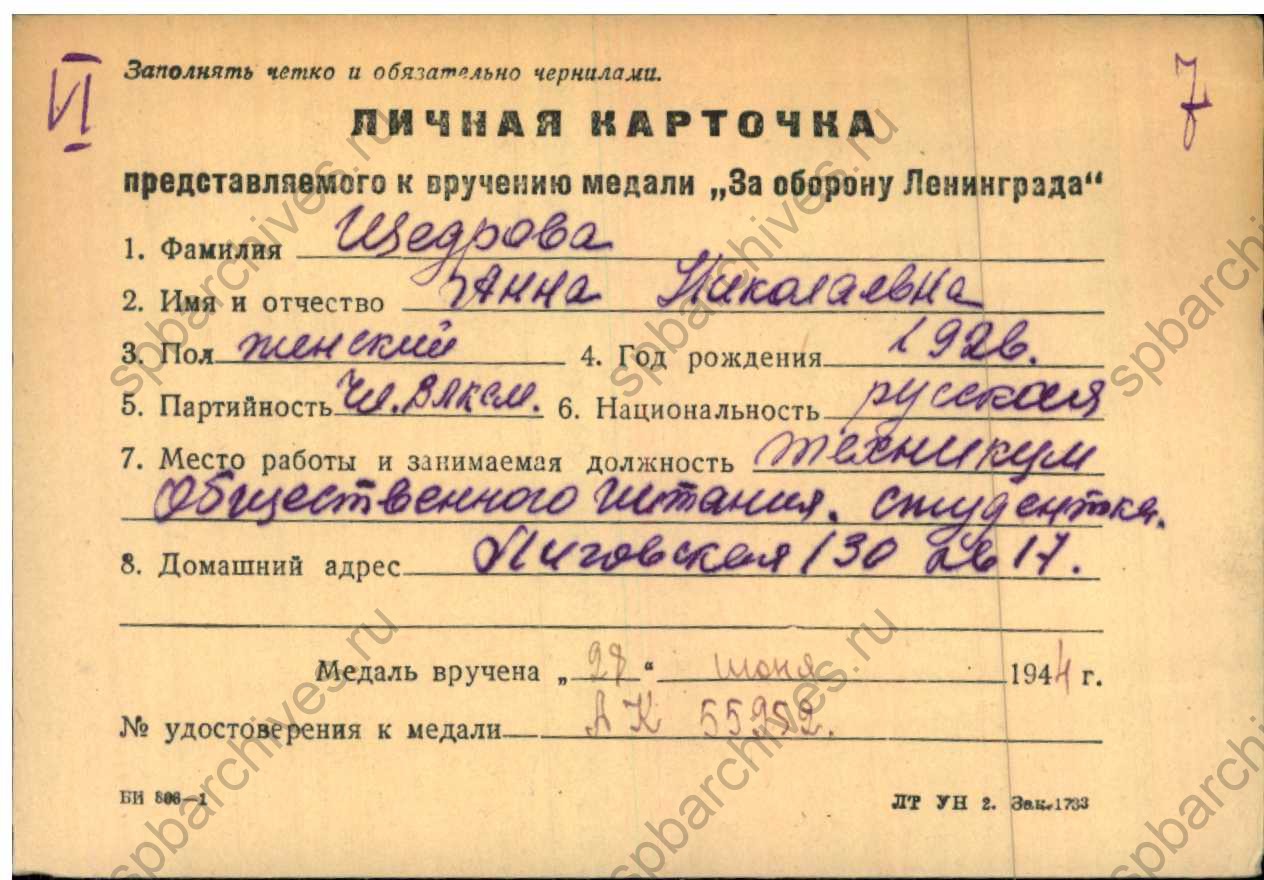 Заполнять четко и обязательно чернилами.
VI 7
ЛИЧНАЯ КАРТОЧКА
представляемого к вручению медали „За оборону Ленинграда“
1. Фамилия Щедрова
2. Имя и отчество Анна Николаевна
3. Пол женский 4. Год рождения 1926.
5. Партийность Чл. ВЛКСМ. 6. Национальность русская
7. Место работы и занимаемая должность техникум
Общественного питания. студентка.
8. Домашний адрес Лиговская 130 кв 17.
Медаль вручена „28“ июня 1944 г.
№ удостоверения к медали АК 55952.
БИ 806—1 ЛТ УН 2. Зак. 1733
spbarchives.ru